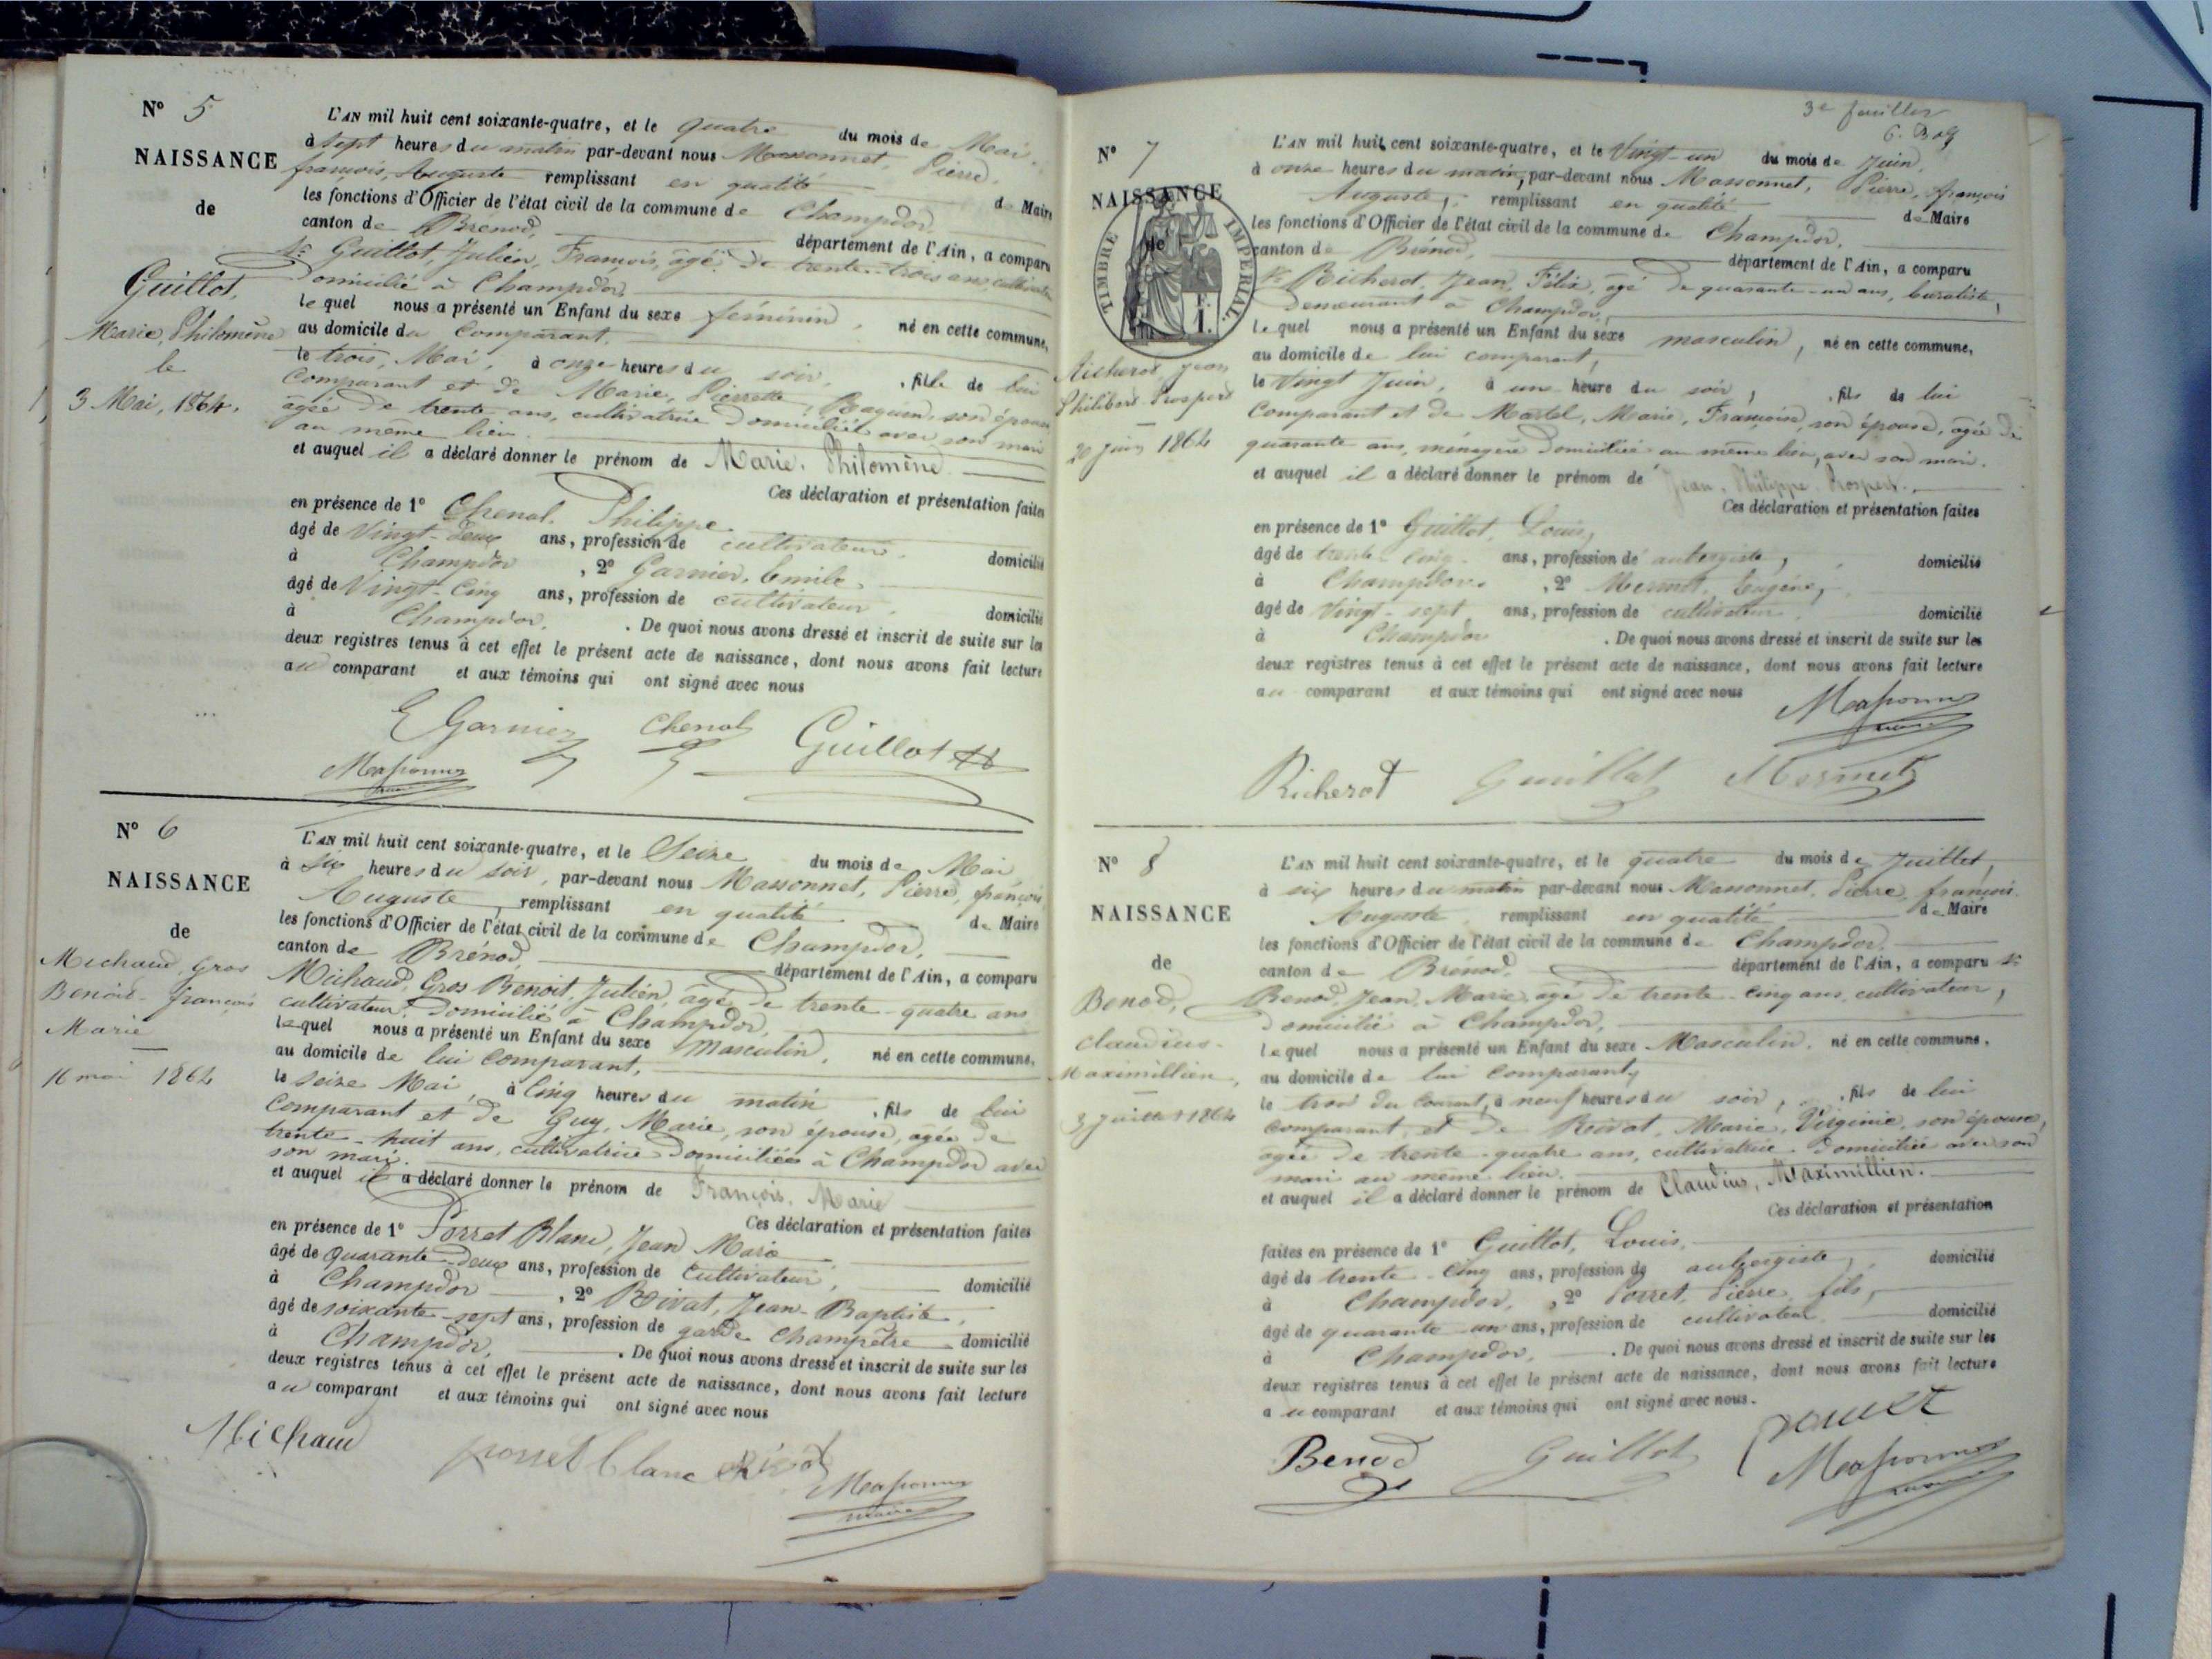 N° 5
NAISSANCE
de
Guillot,
Marie, Philomène
le
3 Mai, 1864.
L'AN mil huit cent soixante-quatre, et le quatre du mois de Mai,
à sept heures du matin par-devant nous Massonnet, Pierre,
françois, Auguste remplissant en qualité de Maire
les fonctions d'Officier de l'état civil de la commune de Champdor,
canton de Brénod, département de l'Ain, a comparu
Sr Guillot, Julien, François, âgé de trente-trois ans, cultivateur
domicilié à Champdor,
lequel nous a présenté un Enfant du sexe féminin, né en cette commune,
au domicile du Comparant,
le trois, Mai, à onze heures du soir, fille de lui
Comparant et de Marie, Pierrette, son épouse
âgée de trente ans, cultivatrice domiciliée avec son mari
au même lieu.
et auquel il a déclaré donner le prénom de Marie, Philomène.
Ces déclaration et présentation faites
en présence de 1° Chenal, Philippe.
âgé de Vingt-deux ans, profession de cultivateur, domicilié
à Champdor, 2° Garnier, Emile,
âgé de Vingt-Cinq ans, profession de cultivateur, domicilié
à Champdor. De quoi nous avons dressé et inscrit de suite sur les
deux registres tenus à cet effet le présent acte de naissance, dont nous avons fait lecture
au comparant et aux témoins qui ont signé avec nous
E Garnier Chenal Guillot
Massonnet
maire
N° 6
NAISSANCE
de
Michaud, Gros
Benoit-françois
Marie
16 mai 1864
L'AN mil huit cent soixante-quatre, et le Seize du mois de Mai
à six heures du soir, par-devant nous Massonnet, Pierre, françois
Auguste, remplissant en qualité de Maire
les fonctions d'Officier de l'état civil de la commune de Champdor,
canton de Brénod, département de l'Ain, a comparu
Michaud, Gros Benoit, Julien, âgé de trente-quatre ans
cultivateur, domicilié à Champdor,
lequel nous a présenté un Enfant du sexe Masculin, né en cette commune,
au domicile de lui Comparant,
le seize Mai, à Cinq heures du matin, fils de lui
Comparant et de Guy, Marie, son épouse, âgée de
trente-huit ans, cultivatrice domiciliée à Champdor avec
son mari.
et auquel il a déclaré donner le prénom de François, Marie
Ces déclaration et présentation faites
en présence de 1° Porret Blanc, Jean Marie
âgé de quarante-deux ans, profession de Cultivateur, domicilié
à Champdor, 2° Rivat, Jean-Baptiste,
âgé de soixante-sept ans, profession de garde Champêtre domicilié
à Champdor, . De quoi nous avons dressé et inscrit de suite sur les
deux registres tenus à cet effet le présent acte de naissance, dont nous avons fait lecture
au comparant et aux témoins qui ont signé avec nous
Michaud porret blanc Rivat
Massonnet
maire
3e feuillet
N° 7
NAISSANCE
de
TIMBRE IMPERIAL
Richerot, Jean
Philibert Prosper
20 Juin 1864
L'AN mil huit cent soixante-quatre, et le Vingt-un du mois de Juin,
à onze heures du matin, par-devant nous Massonnet, Pierre, françois
Auguste, remplissant en qualité de Maire
les fonctions d'Officier de l'état civil de la commune de Champdor,
canton de Brénod, département de l'Ain, a comparu
Sr Richerot, Jean, Félix, âgé de quarante-un ans, buraliste,
demeurant à Champdor,
lequel nous a présenté un Enfant du sexe masculin, né en cette commune,
au domicile de lui comparant,
le Vingt Juin, à une heure du soir, fils de lui
Comparant et de Martel, Marie, Françoise, son épouse, âgée de
quarante ans, ménagère domiciliée au même lieu, avec son mari.
et auquel il a déclaré donner le prénom de Jean, Philippe Prosper.
Ces déclaration et présentation faites
en présence de 1° Guillot, Louis,
âgé de trente-cinq ans, profession de aubergiste, domicilié
à Champdor, 2° Mermet, Eugène,
âgé de Vingt-sept ans, profession de cultivateur, domicilié
à Champdor . De quoi nous avons dressé et inscrit de suite sur les
deux registres tenus à cet effet le présent acte de naissance, dont nous avons fait lecture
au comparant et aux témoins qui ont signé avec nous
Massonnet
maire
Richerot Guillot Mermet
N° 8
NAISSANCE
de
Benod,
Claudius-
Maximillien,
3 Juillet 1864
L'AN mil huit cent soixante-quatre, et le quatre du mois de Juillet,
à six heures du matin par-devant nous Massonnet, Pierre, françois
Auguste, remplissant en qualité de Maire
les fonctions d'Officier de l'état civil de la commune de Champdor,
canton de Brénod, département de l'Ain, a comparu Sr
Benod, Jean, Marie, âgé de trente-cinq ans, cultivateur,
domicilié à Champdor,
lequel nous a présenté un Enfant du sexe Masculin, né en cette commune,
au domicile de lui Comparant,
le trois du Courant, à neuf heures du soir, fils de lui
comparant, et de Rivat, Marie, Virginie, son épouse,
âgée de trente-quatre ans, cultivatrice domiciliée avec son
mari au même lieu.
et auquel il a déclaré donner le prénom de Claudius, Maximillien.
Ces déclaration et présentation
faites en présence de 1° Guillot, Louis,
âgé de trente-cinq ans, profession de aubergiste, domicilié
à Champdor, 2° Porret, Pierre, fils,
âgé de quarante-un ans, profession de cultivateur, domicilié
à Champdor, . De quoi nous avons dressé et inscrit de suite sur les
deux registres tenus à cet effet le présent acte de naissance, dont nous avons fait lecture
au comparant et aux témoins qui ont signé avec nous.
Benod Guillot
Massonnet
maire